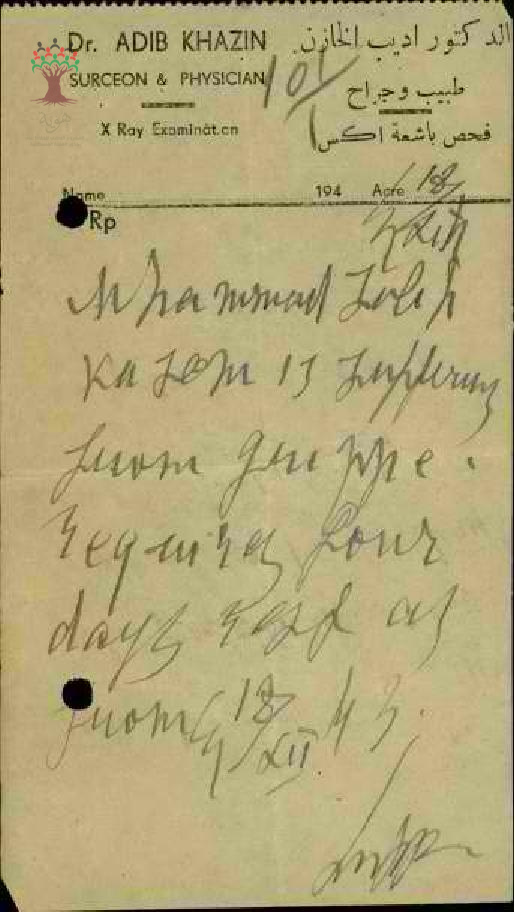 Dr. ADIB KHAZIN
الدكتور اديب الخازن
SURCEON & PHYSICIAN
طبيب وجراح
101
X Ray Examination
فحص باشعة اكس
Name 194 Acre 18/XII
Rp
Mhammad Saleh
Kasem is suffering
from grippe.
requires four
days rest as
from 18/XII 43.